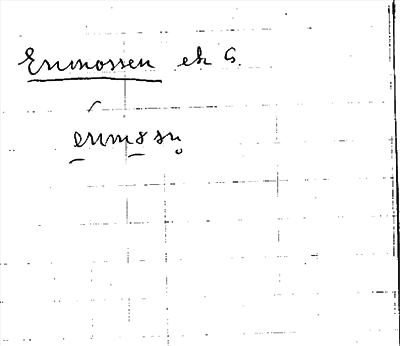 Enmossen ek G.
enmɷsn̥